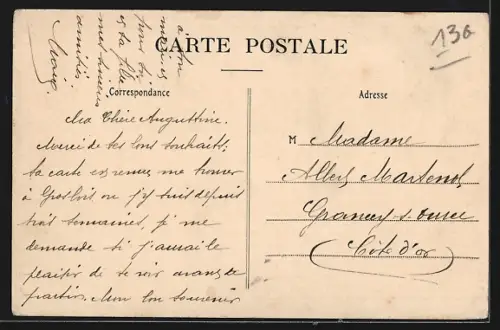 CARTE POSTALE
Correspondance
Adresse
136
Ma Chère Augustine.
Merci de tes bons souhaits,
ta carte est venue me trouver
à Grosbois, où j'y suis depuis
trois semaines, je me
demande si j'aurai le
plaisir de te voir avant de
partir. Mon bon souvenir
à ton
mari et
pour toi
et ta fille
mes sincères
amitiés.
M Madame
Albert Martenot
Grancey s. ource
(Côte d'or)